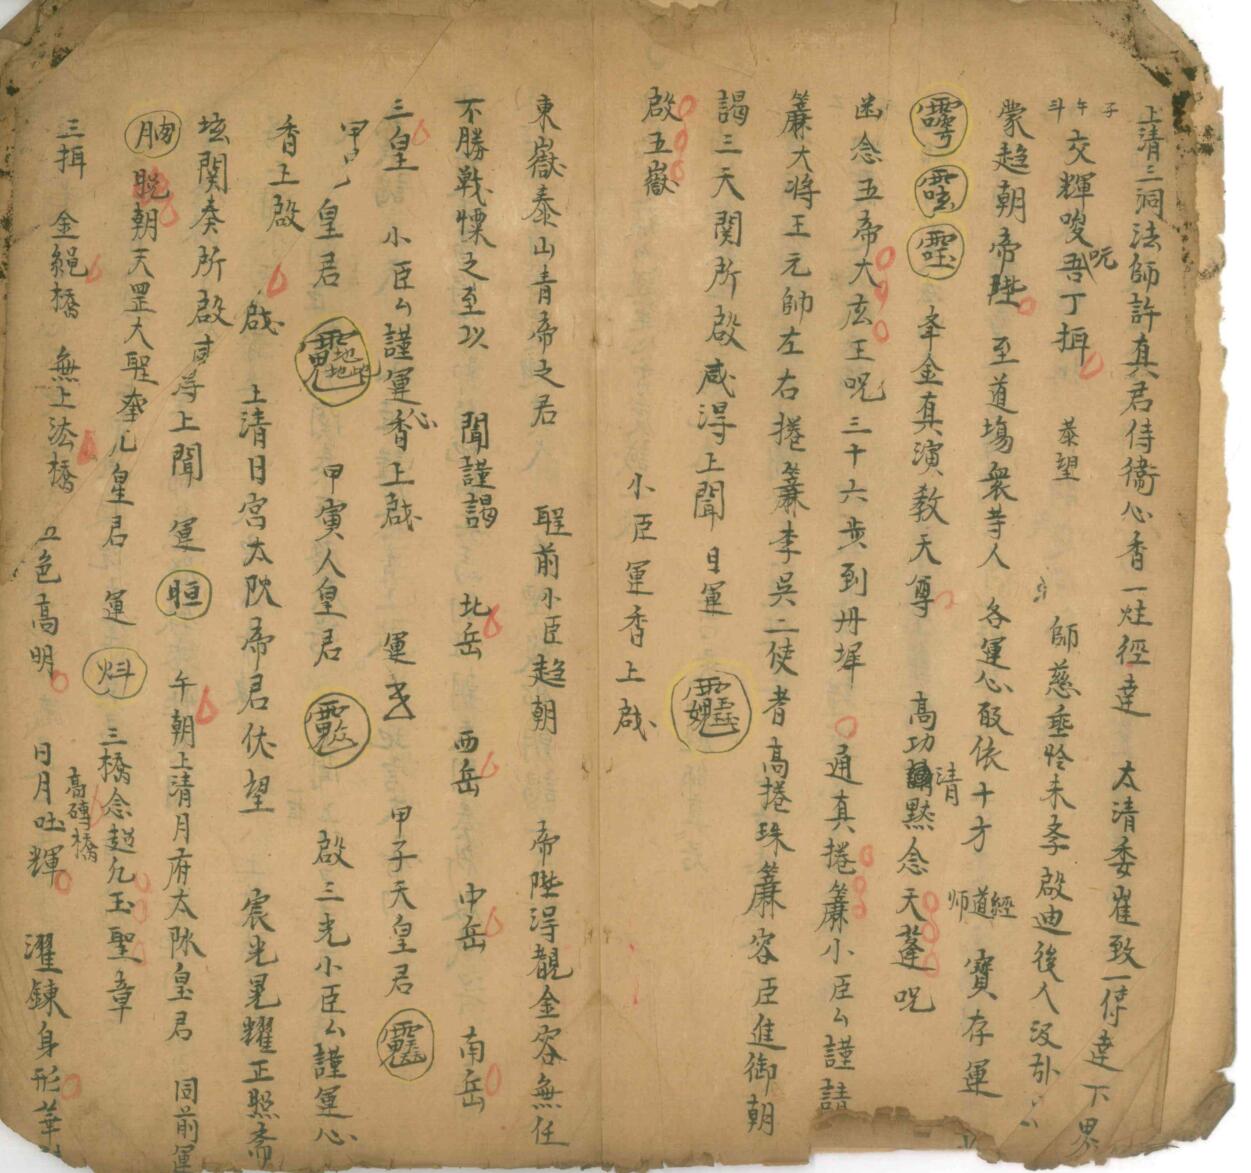 上清三洞法師許真君侍衞心香一炷徑達 太清委崔致一傳達下界
子午斗交輝唆吾丁揖 恭望 師慈垂怜未季啟迪後人汲引
蒙趋朝帝陛 至道塲衆等人 各運心皈依十方 經道师 寶存運
奉金真演教天尊 高功 清 默念天蓬呪
凼念五帝大玄王呪三十六步到丹墀 通真捲簾小臣厶謹請
簾大将王元帥左右捲簾李吳二使者高捲珠簾容臣進御朝
謁三天関所啟咸淂上聞日運
啟五嶽 小臣運香上啟
東嶽泰山青帝之君 聖前小臣趋朝 帝陛淂覩金容無任
不勝戰慄之至以 聞謹謁 北岳 西岳 中岳 南岳
三皇 小臣厶謹運心香上啟 運 甲子天皇君
皇君 甲寅人皇君 啟三光小臣厶謹運心
香上啟 啟 上清日宮太陽帝君伏望 宸光晃耀正照斋
坛関奏所啟 上聞 運 午朝上清月府太陰皇君 同前運
脱朝天罡大聖 皇君 運 三橋念趋九玉聖章
三揖 金繩橋 無上法橋 五色高明 日月吐輝 高磚橋 濯鍊身形華